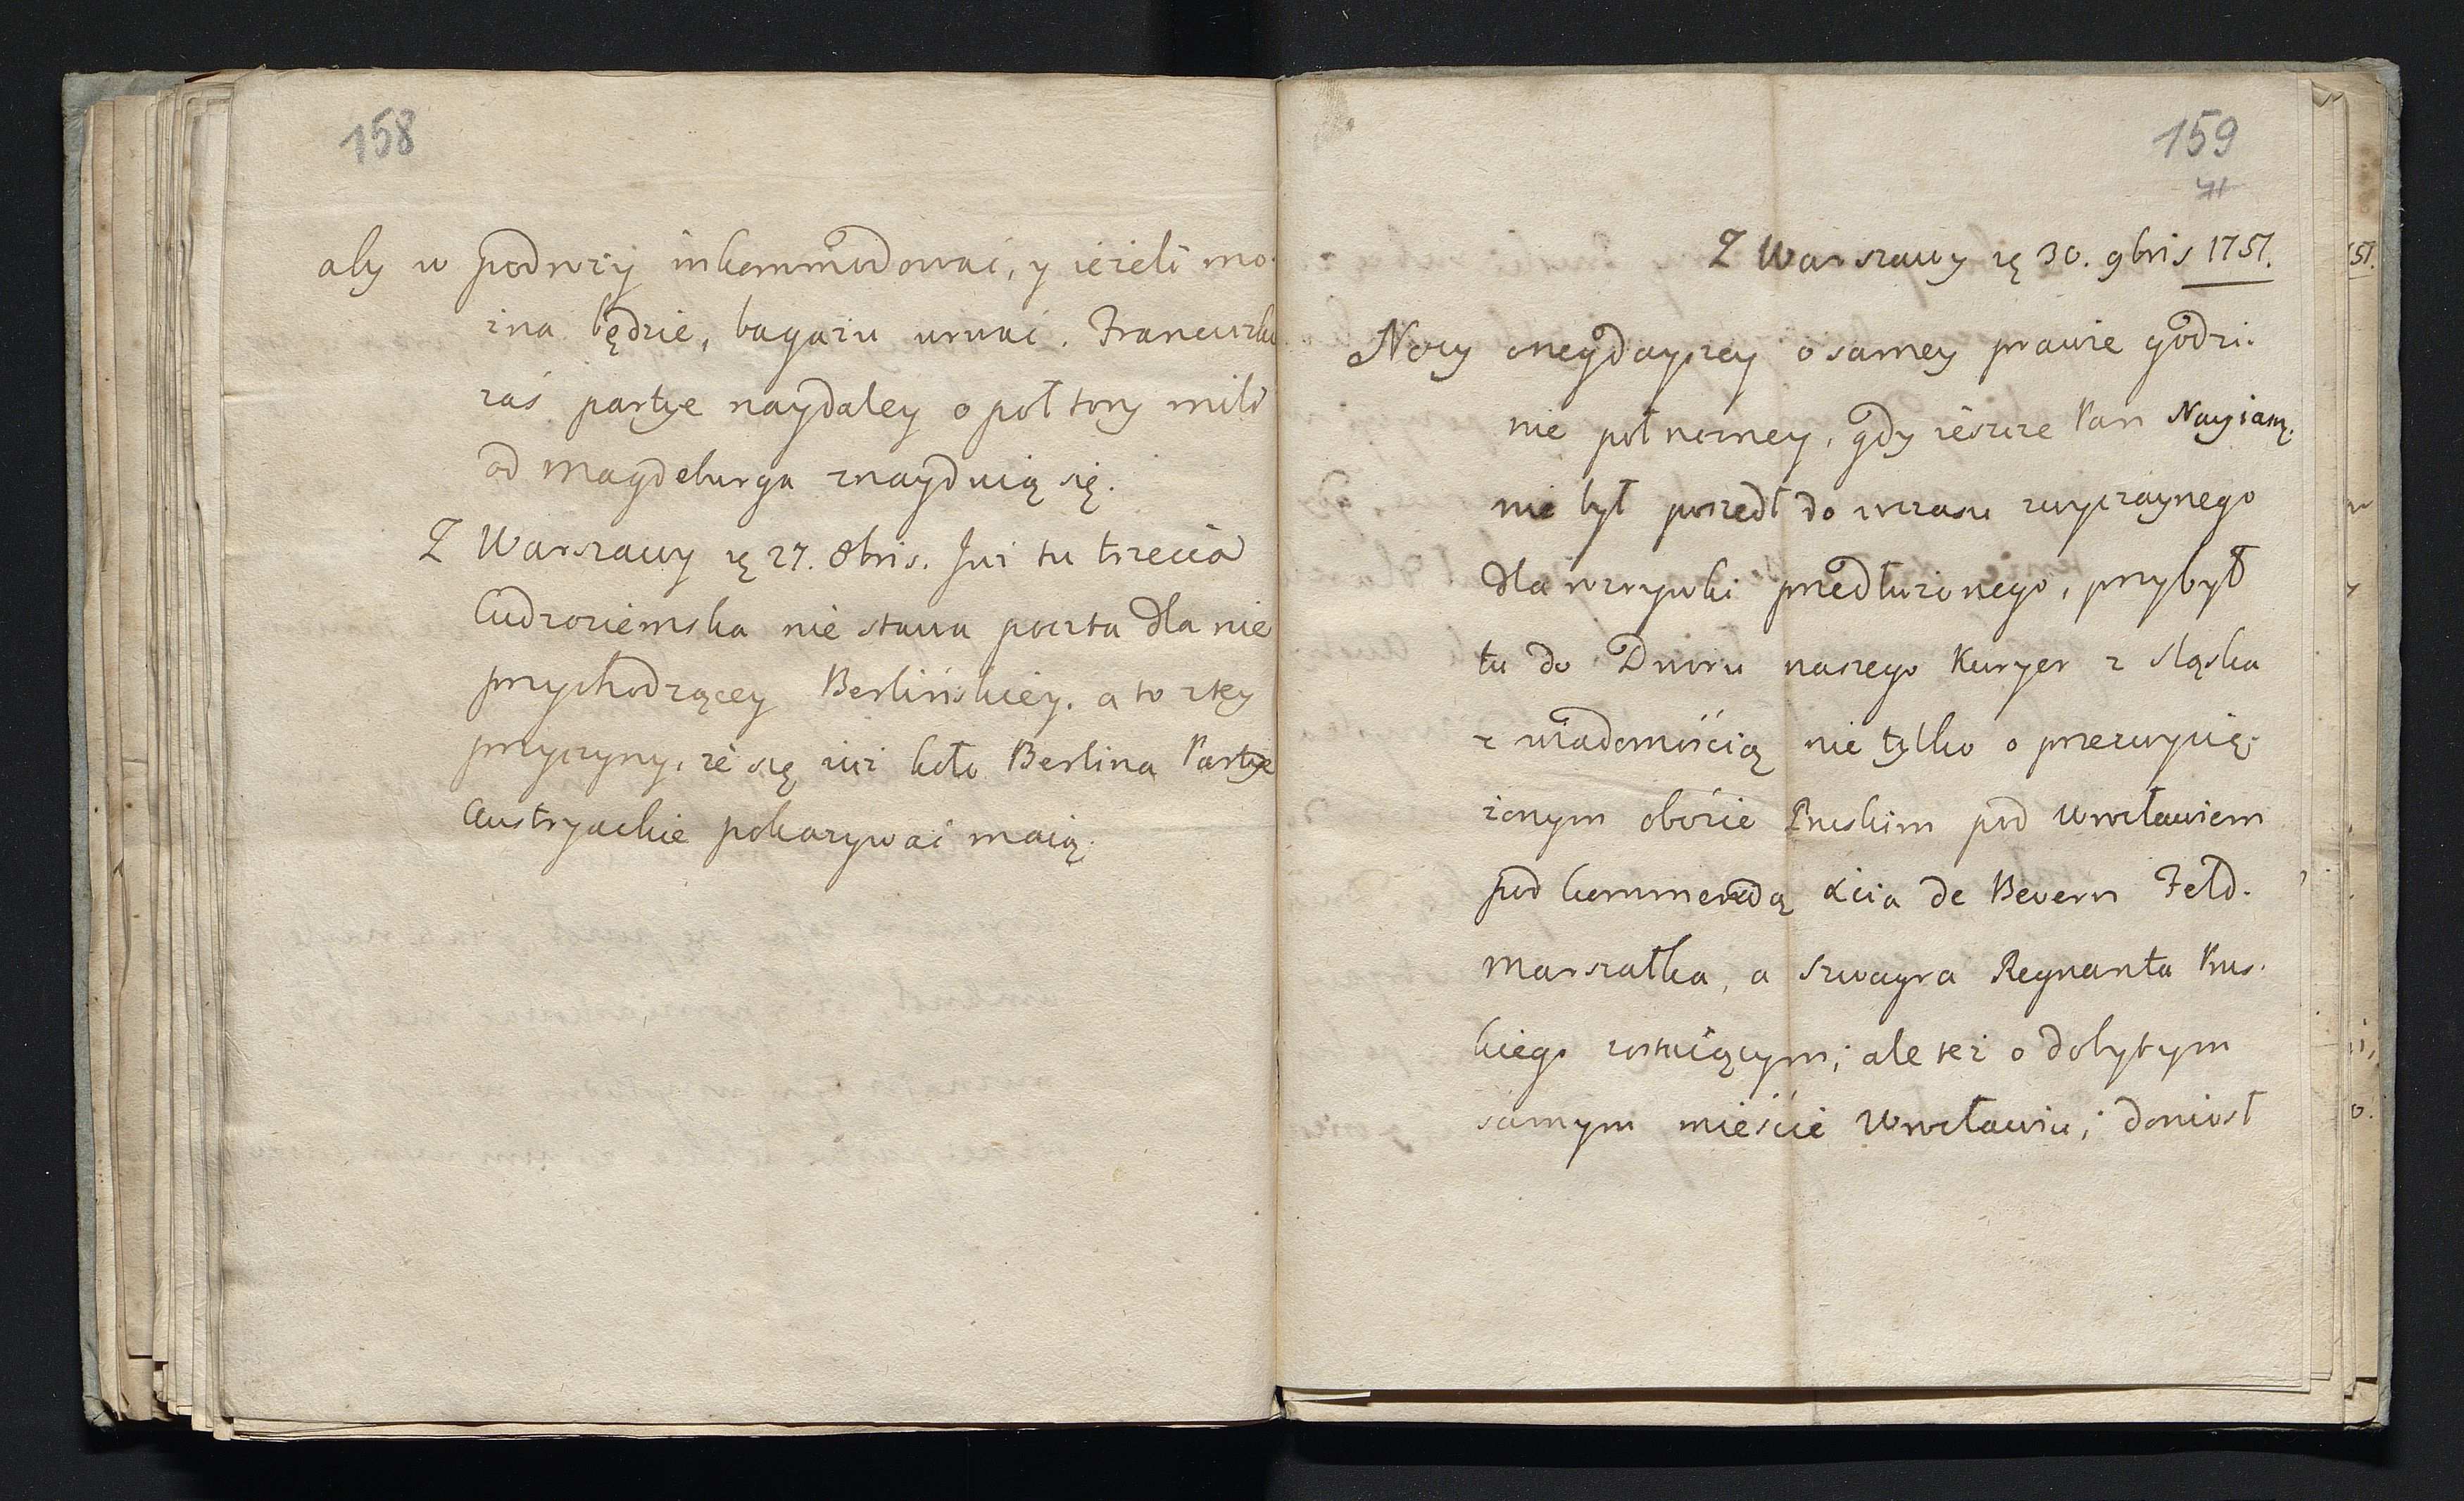 158
aby w podroży inkommodować, y ieżeli mo-
żna będzie, bagażu urwać. Francuzkie
zaś partye naydaley o poł tory mili
od Magdeburga znayduią się.
Z Warszawy 27. 8bris. Już tu trzecia
Cudzoziemska nie stawa poczta dla nie
przychodzącey Berlińskiey. a to z tey
przyczyny, że się iuż koło Berlina Partye
Austryackie pokazywać maią.
159
Z Warszawy 30. 9bris 1757.
Nocy onegdayszey o samey prawie godzi-
nie połnocney, gdy ieszcze Pan Nayiaśn.
nie był poszedł do wczasu zwyczaynego
dla rozrywki przedłużonego, przybył
tu do Dworu naszego Kuryer z Sląska
z wiadomością nie tylko o przezwycię-
żonym obozie Pruskim pod Wrocławiem
pod kommendą Xcia de Bevern Feld-
Marszałka, a Szwagra Regnanta Prus-
kiego zostaiącym; ale też o dobytym
samym mieście Wrocławiu; doniosł